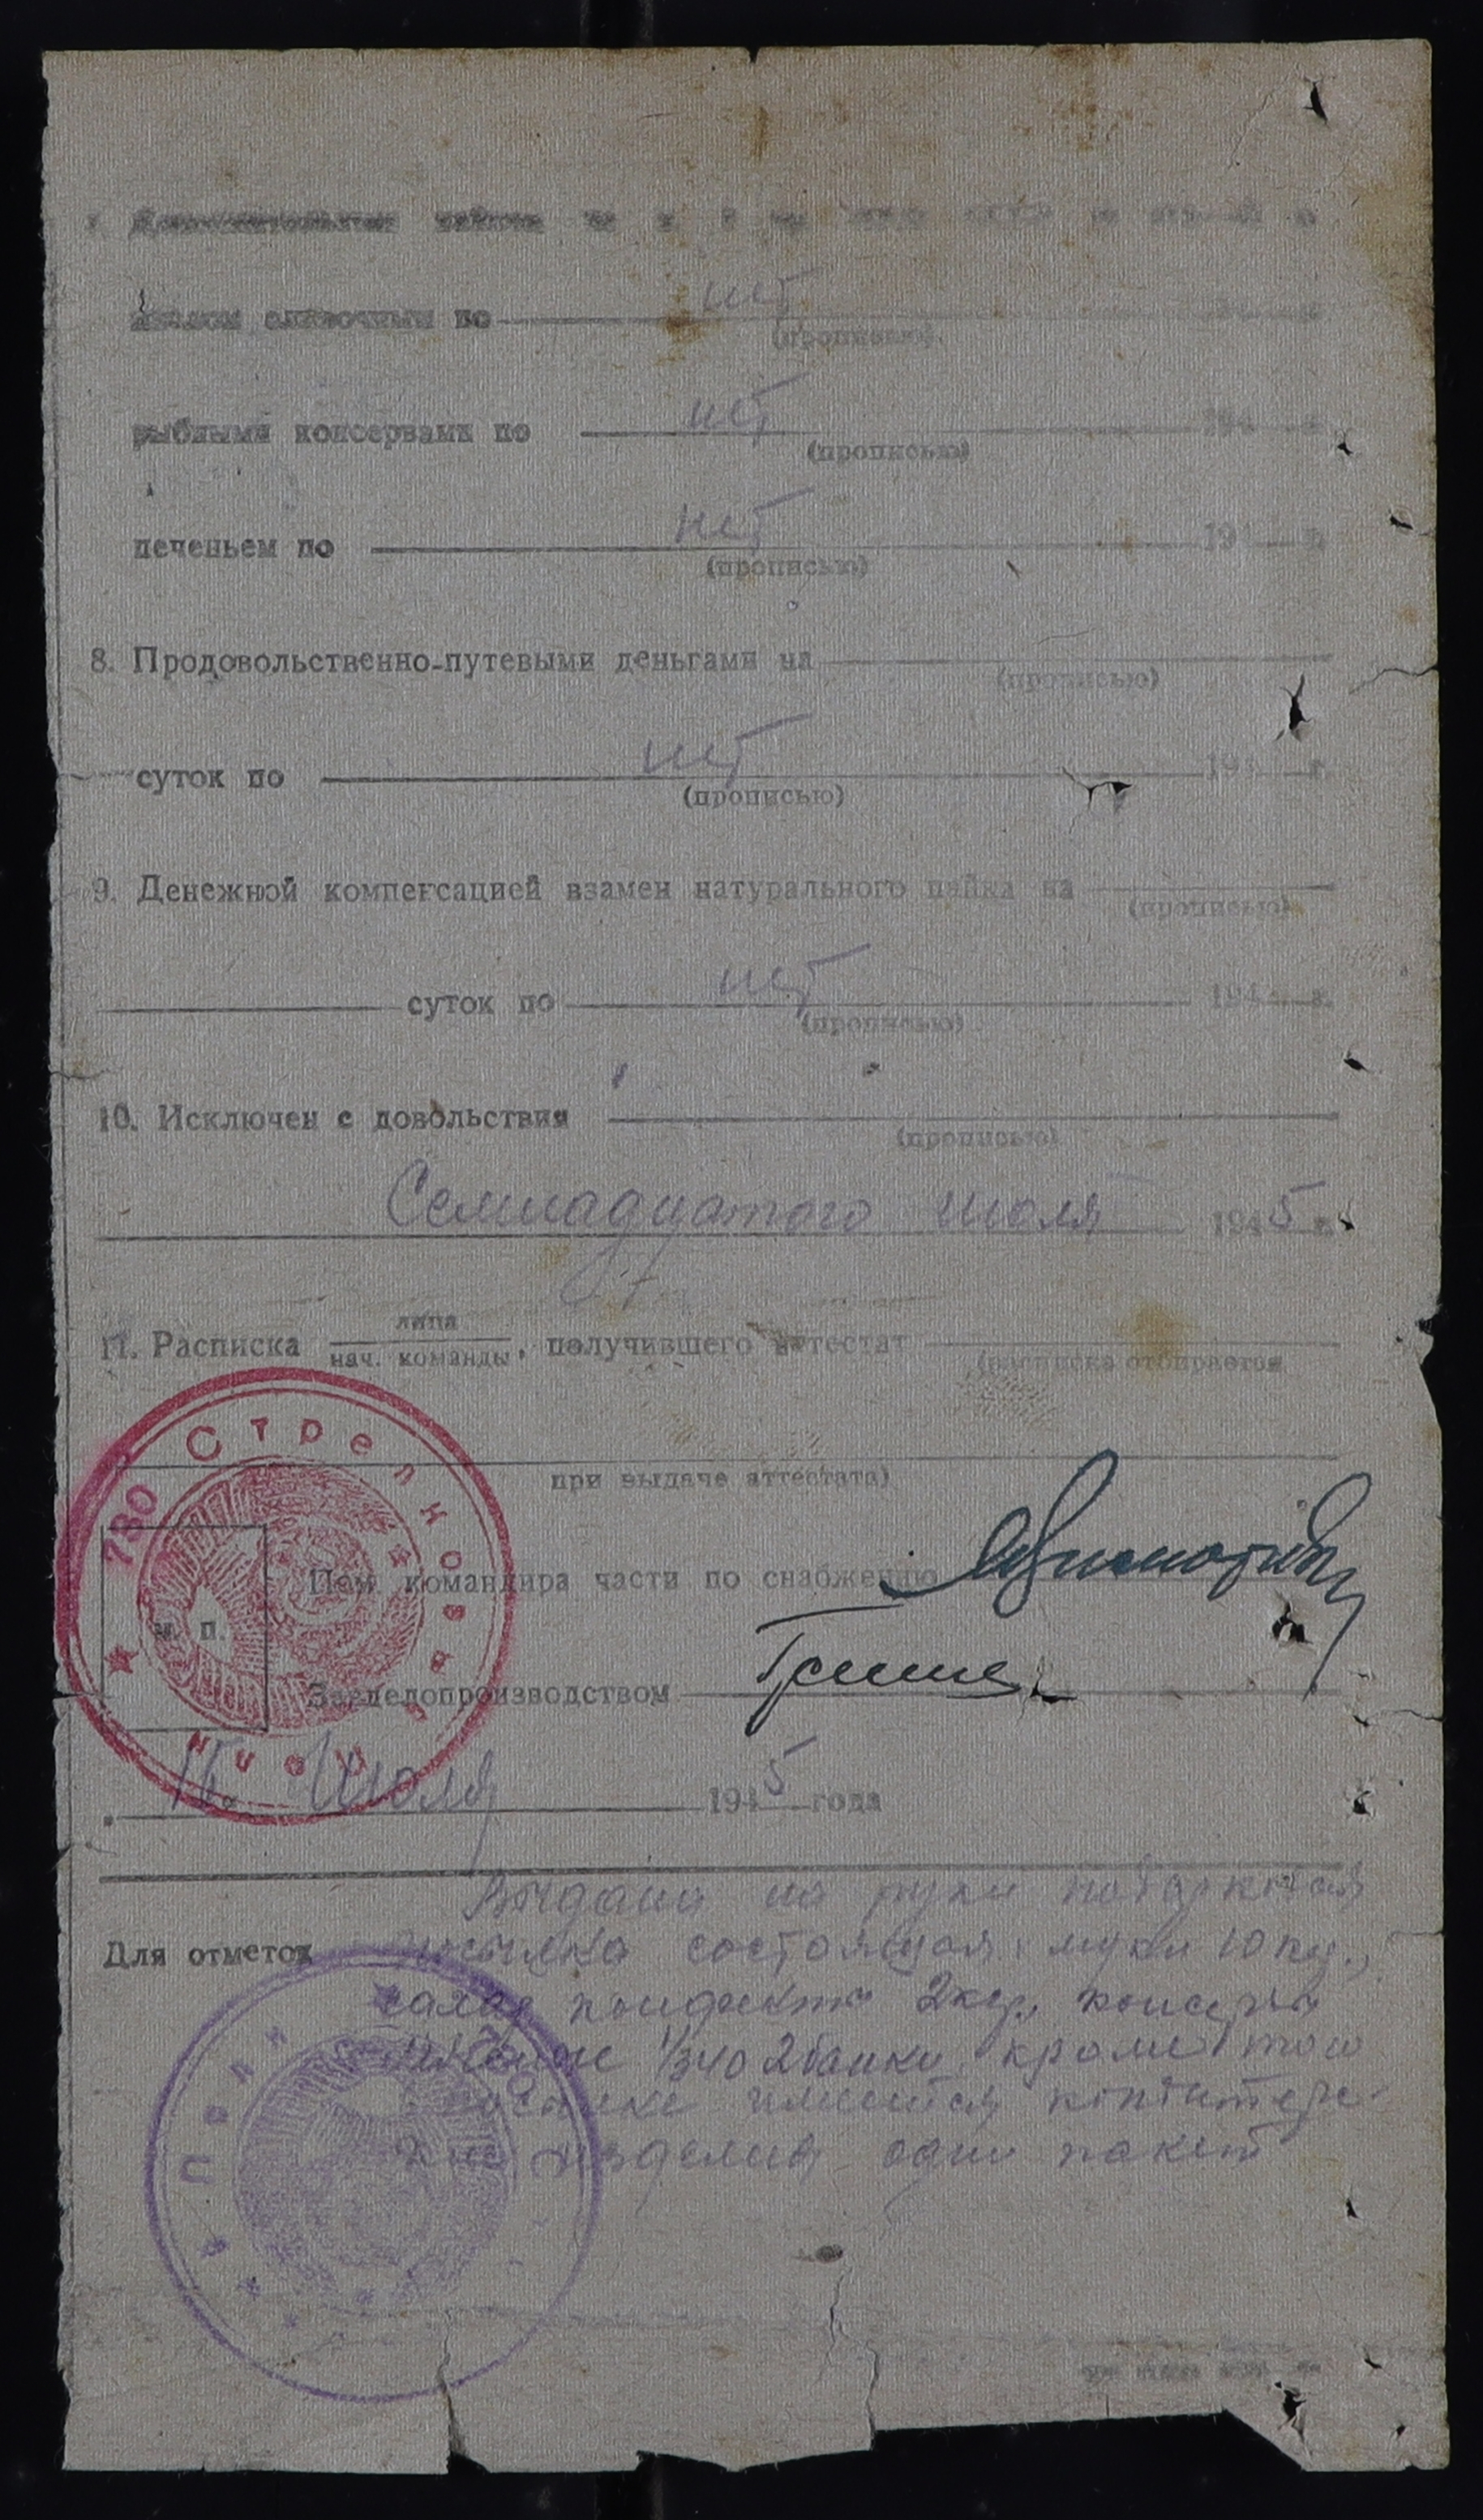 маслом сливочным по нет
(прописью)
рыбными консервами по нет 194 г.
(прописью)
печеньем по нет 194 г.
(прописью)
8. Продовольственно-путевыми деньгами на
(прописью)
суток по нет 194 г.
(прописью)
9. Денежной компенсацией взамен натурального пайка на
(прописью)
суток по нет 194 г.
(прописью)
10. Исключен с довольствия
(прописью)
Семнадцатого июля 1945 г.
17
11. Расписка лица
нач. команды, получившего аттестат
(расписка отбирается
при выдаче аттестата)
780 Стрелковый
Полк
Пом. командира части по снабжению
м. п.
Завделопроизводством
Июля 1945 года
Выдана на руки подарочная
Для отметок посылка состоящая: муки 10 кгр.,
сахар конфекты 2кгр. консервы
1/340 2 банки, кроме того
посылке имеется кондитерс-
кие изделия один пакет
Полк 780